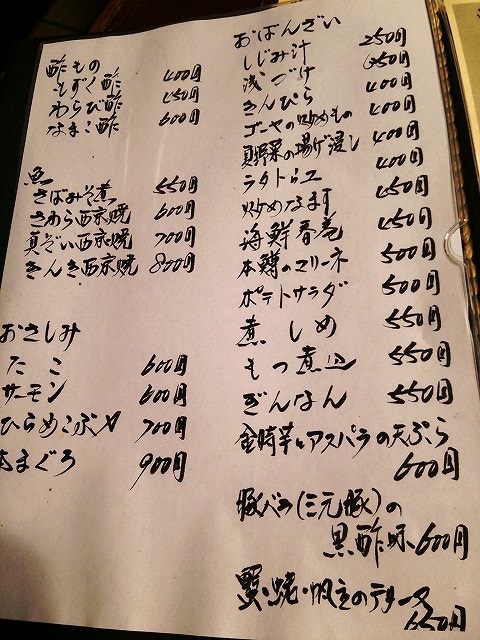 酢もの
もずく酢 400円
わらび酢 450円
なまこ酢 600円
魚
さばみそ煮 550円
さわら西京焼 600円
真だい西京焼 700円
きんき西京焼 800円
おさしみ
たこ 600円
サーモン 600円
ひらめこぶ〆 700円
本まぐろ 900円
おばんざい
しじみ汁 250円
浅づけ 350円
きんぴら 400円
ゴーヤの炒めもの 400円
夏野菜の揚げ浸し 400円
ラタトゥユ 400円
炒めなます 450円
海鮮春巻 450円
本鱒のマリーネ 500円
ポテトサラダ 500円
煮しめ 550円
もつ煮込 550円
ぎんなん 550円
金時芋とアスパラの天ぷら
600円
豚バラ(三元豚)の
黒酢味 600円
蟹・海老・帆立のテリーヌ
650円